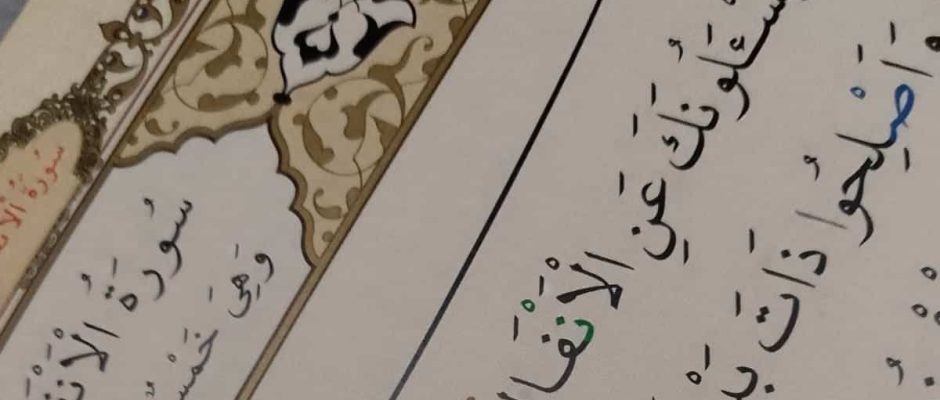 سُورَةُ
سُورَةُ الْاَنْ
وَهِيَ خَمْسٌ
سْـَٔلُونَكَ عَنِ الْاَنْفَا
وَاَصْلِحُوا ذَاتَ بَ